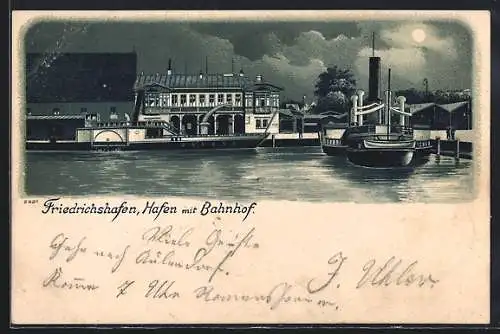 Friedrichshafen, Hafen mit Bahnhof.
Viele Grüße
Gehe nach Aulendorf.
Komme 7 Uhr
J. Uhler